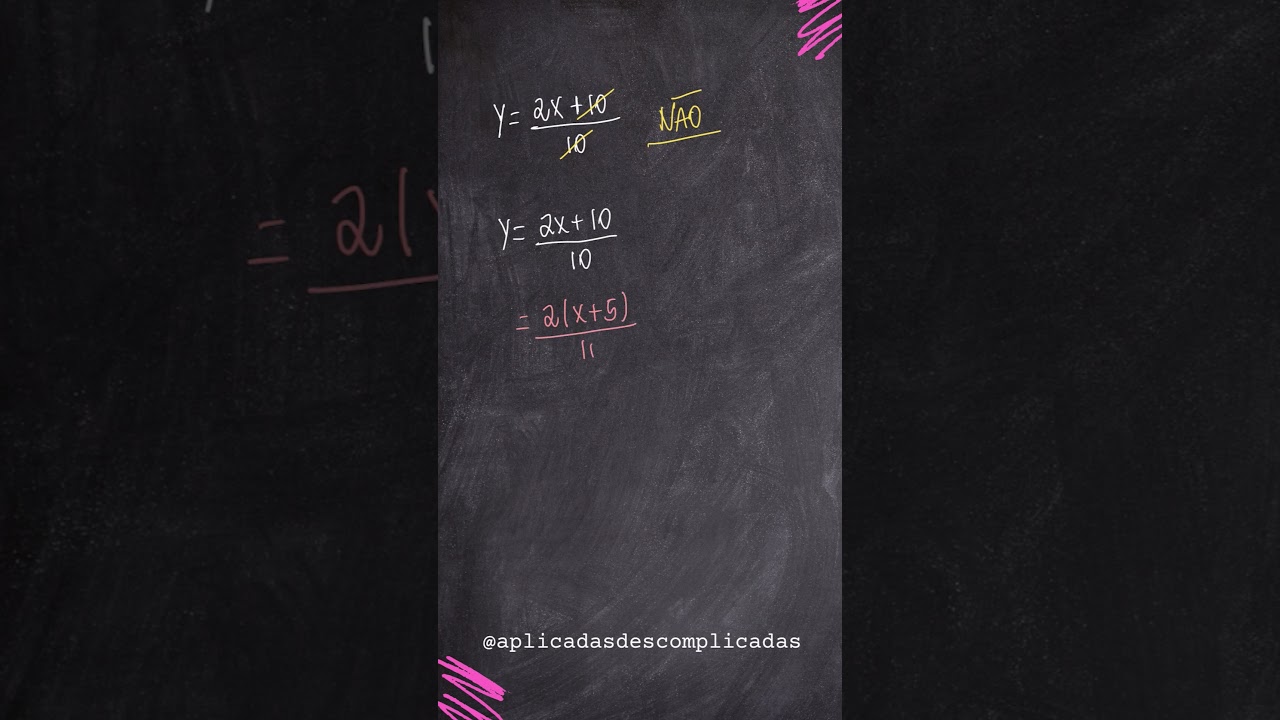 Y = 2x + 10 NÃO
10
Y = 2x + 10
10
= 2(x+5)
@aplicadasdescomplicadas